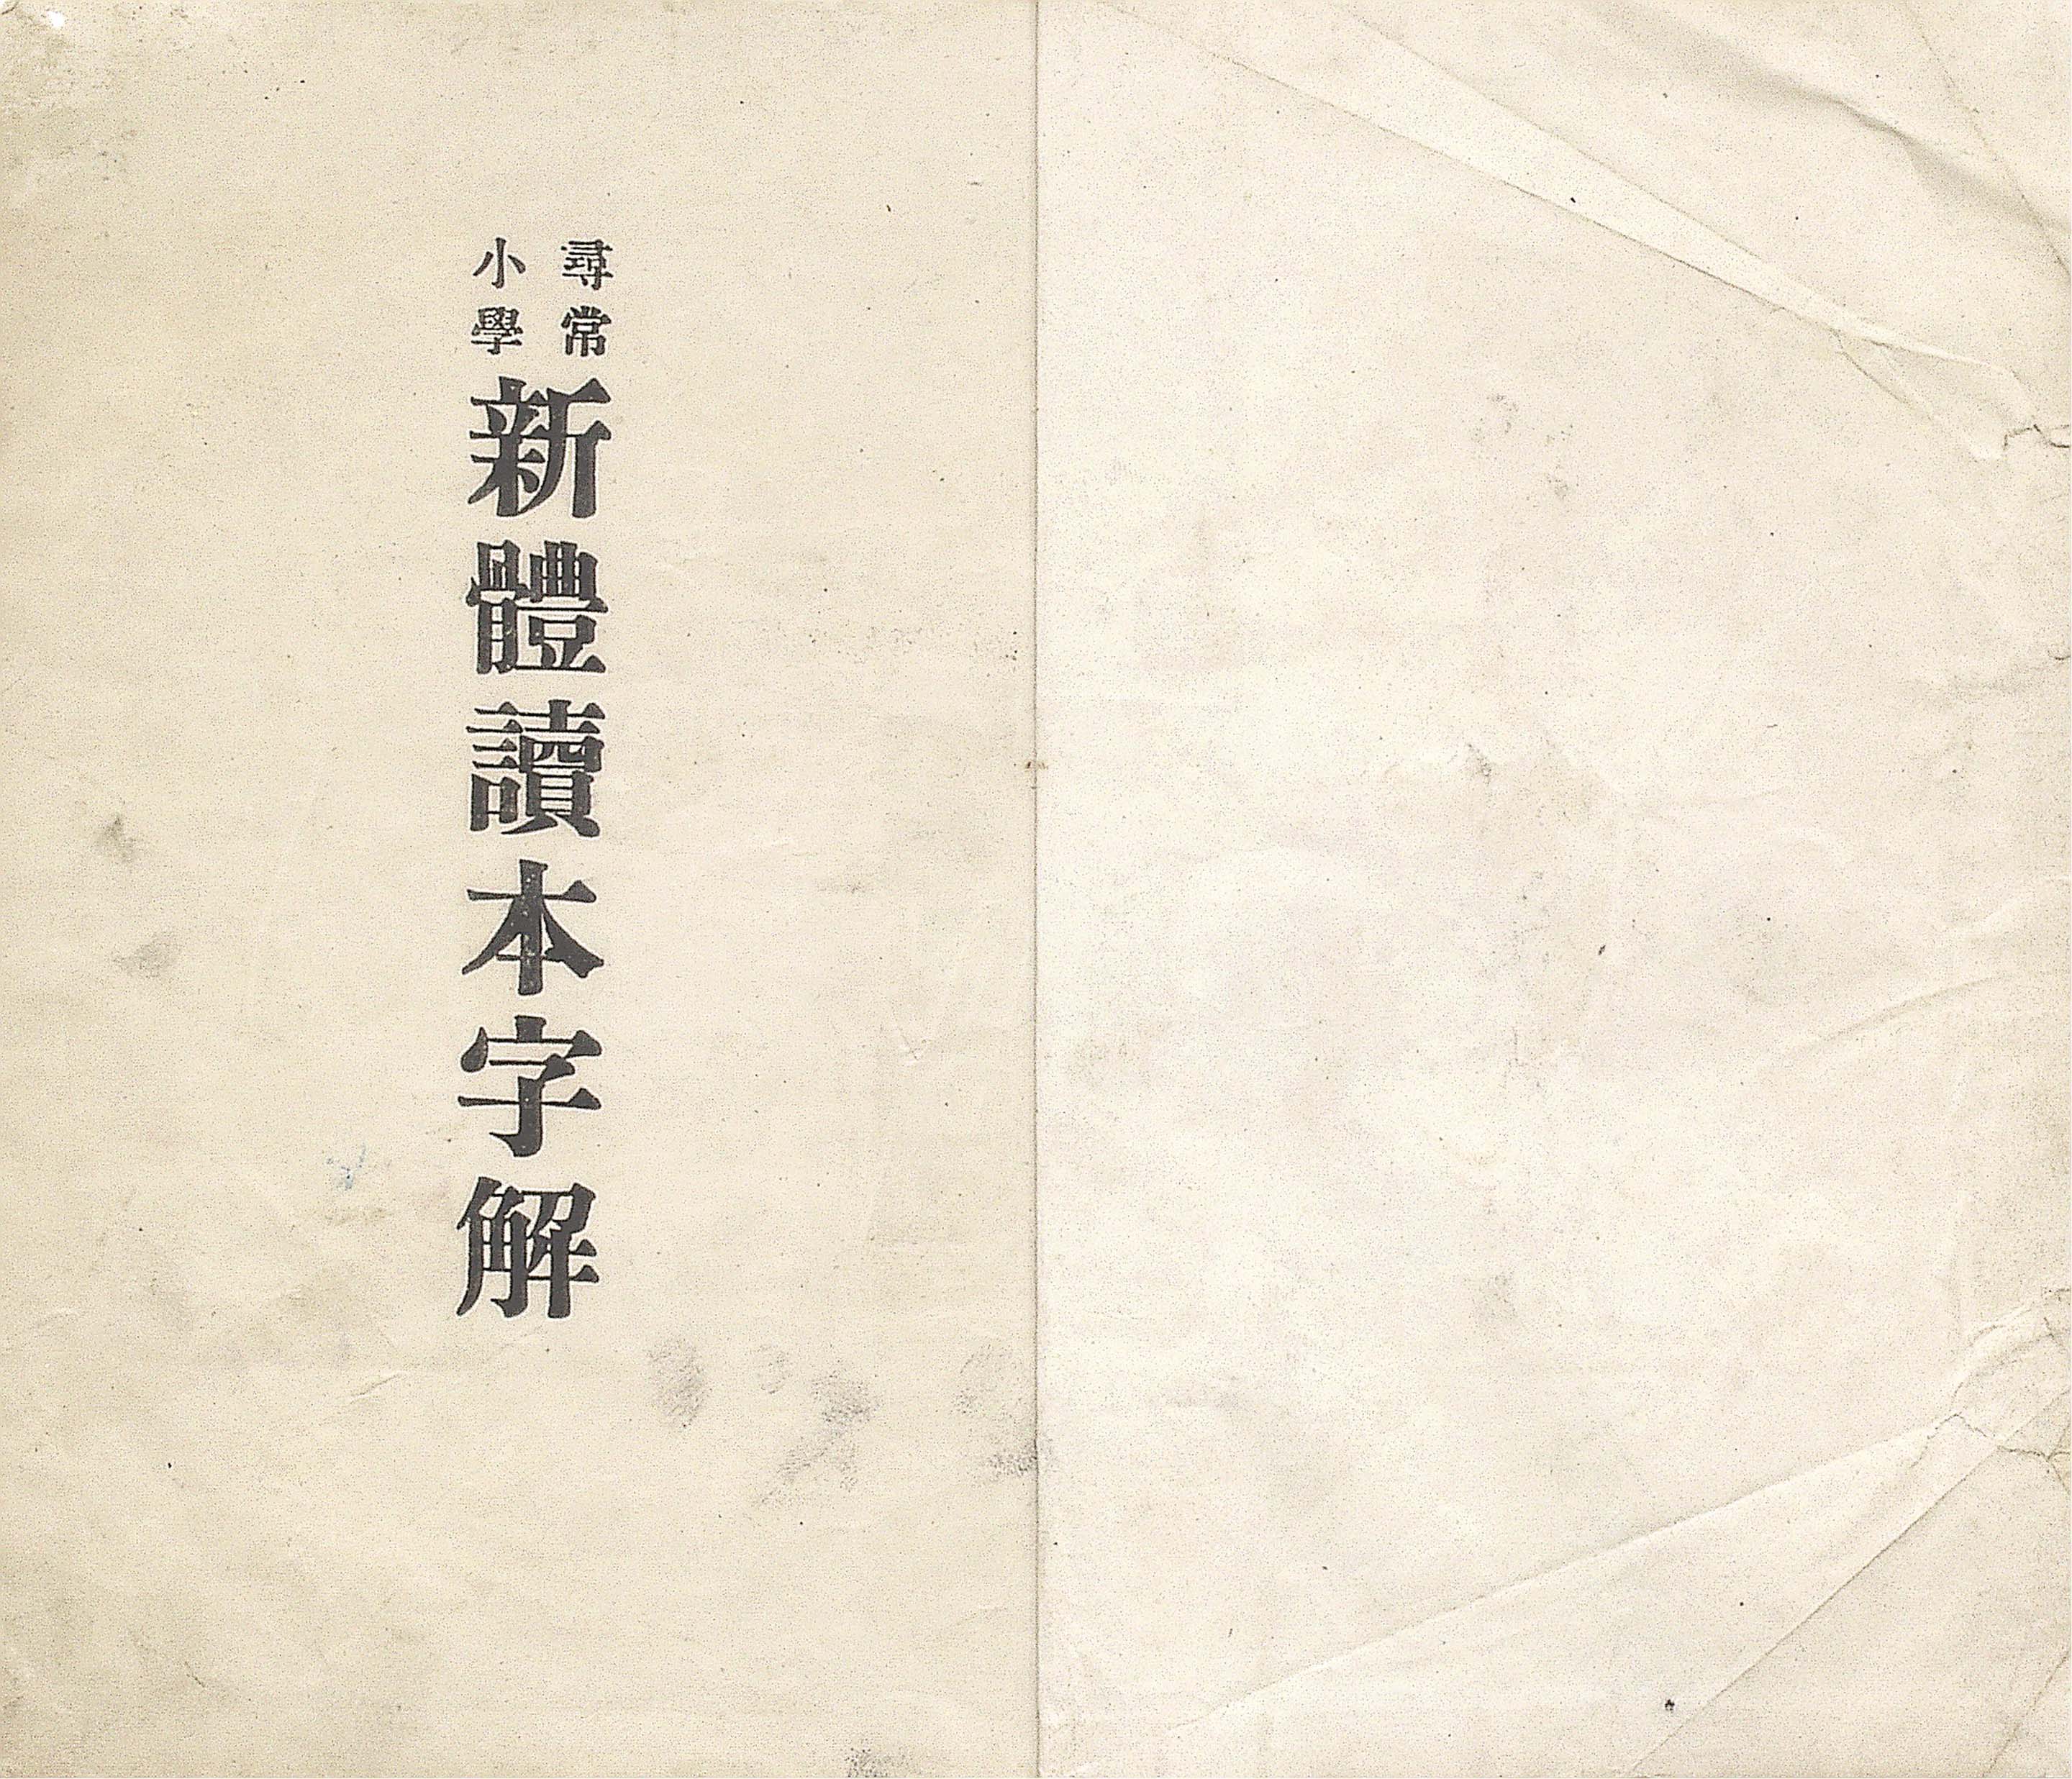 尋常
小學
新體讀本字解